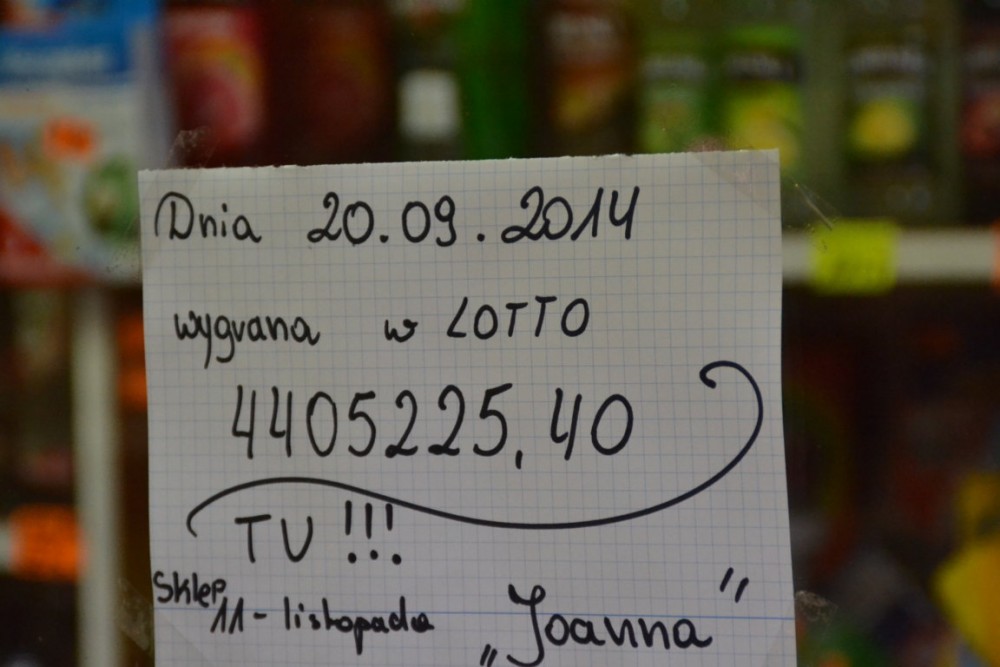 Dnia 20.09.2014
wygrana w LOTTO
4405225,40
TU !!!
Sklep
11-listopada „Joanna”